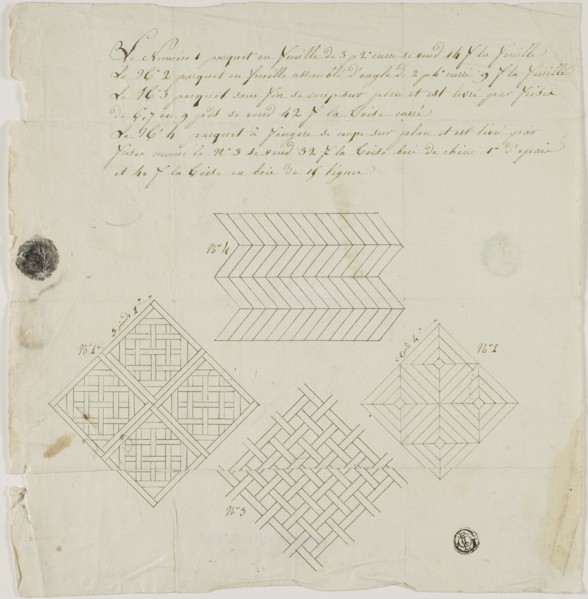 Le Numéro 1 parquet en feuille de 3 p 2° carré se vend 14 f la feuille
Le N° 2 parquet en feuille assemblé d'onglet de 2 p 4° carré 9 f la feuille
Le N° 3 parquet sans fin se coupe sur place et est livré par
de 6, 7 ou 9 pds se vend 42 f la toise carré
Le N° 4 parquet à fougere se coupe sur place et est livré par
comme le N° 3 se vend 32 f la toise bois de chêne 1° d'épais
et 40 f la toise en bois de 15 lignes
N° 4
3 pds 2°
N° 1
N° 2
N° 3